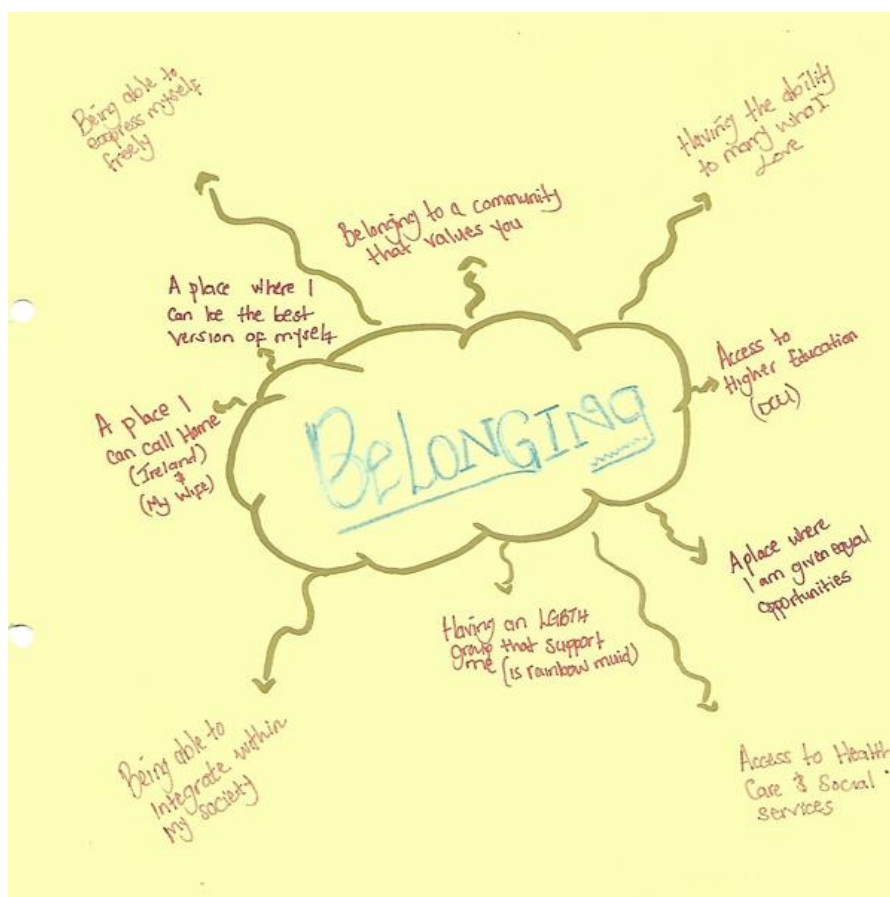 Being able to
express myself
freely
Having the ability
to marry who I
Love
Belonging to a community
that values you
A place where I
can be the best
version of myself
Access to
Higher Education
(DCU)
A place I
can call Home
(Ireland)
&
(My Wife)
BELONGING
A place where
I am given equal
opportunities
Having an LGBT+
group that support
me (is rainbow muid)
Being able to
Integrate within
My society
Access to Health
Care & Social
services